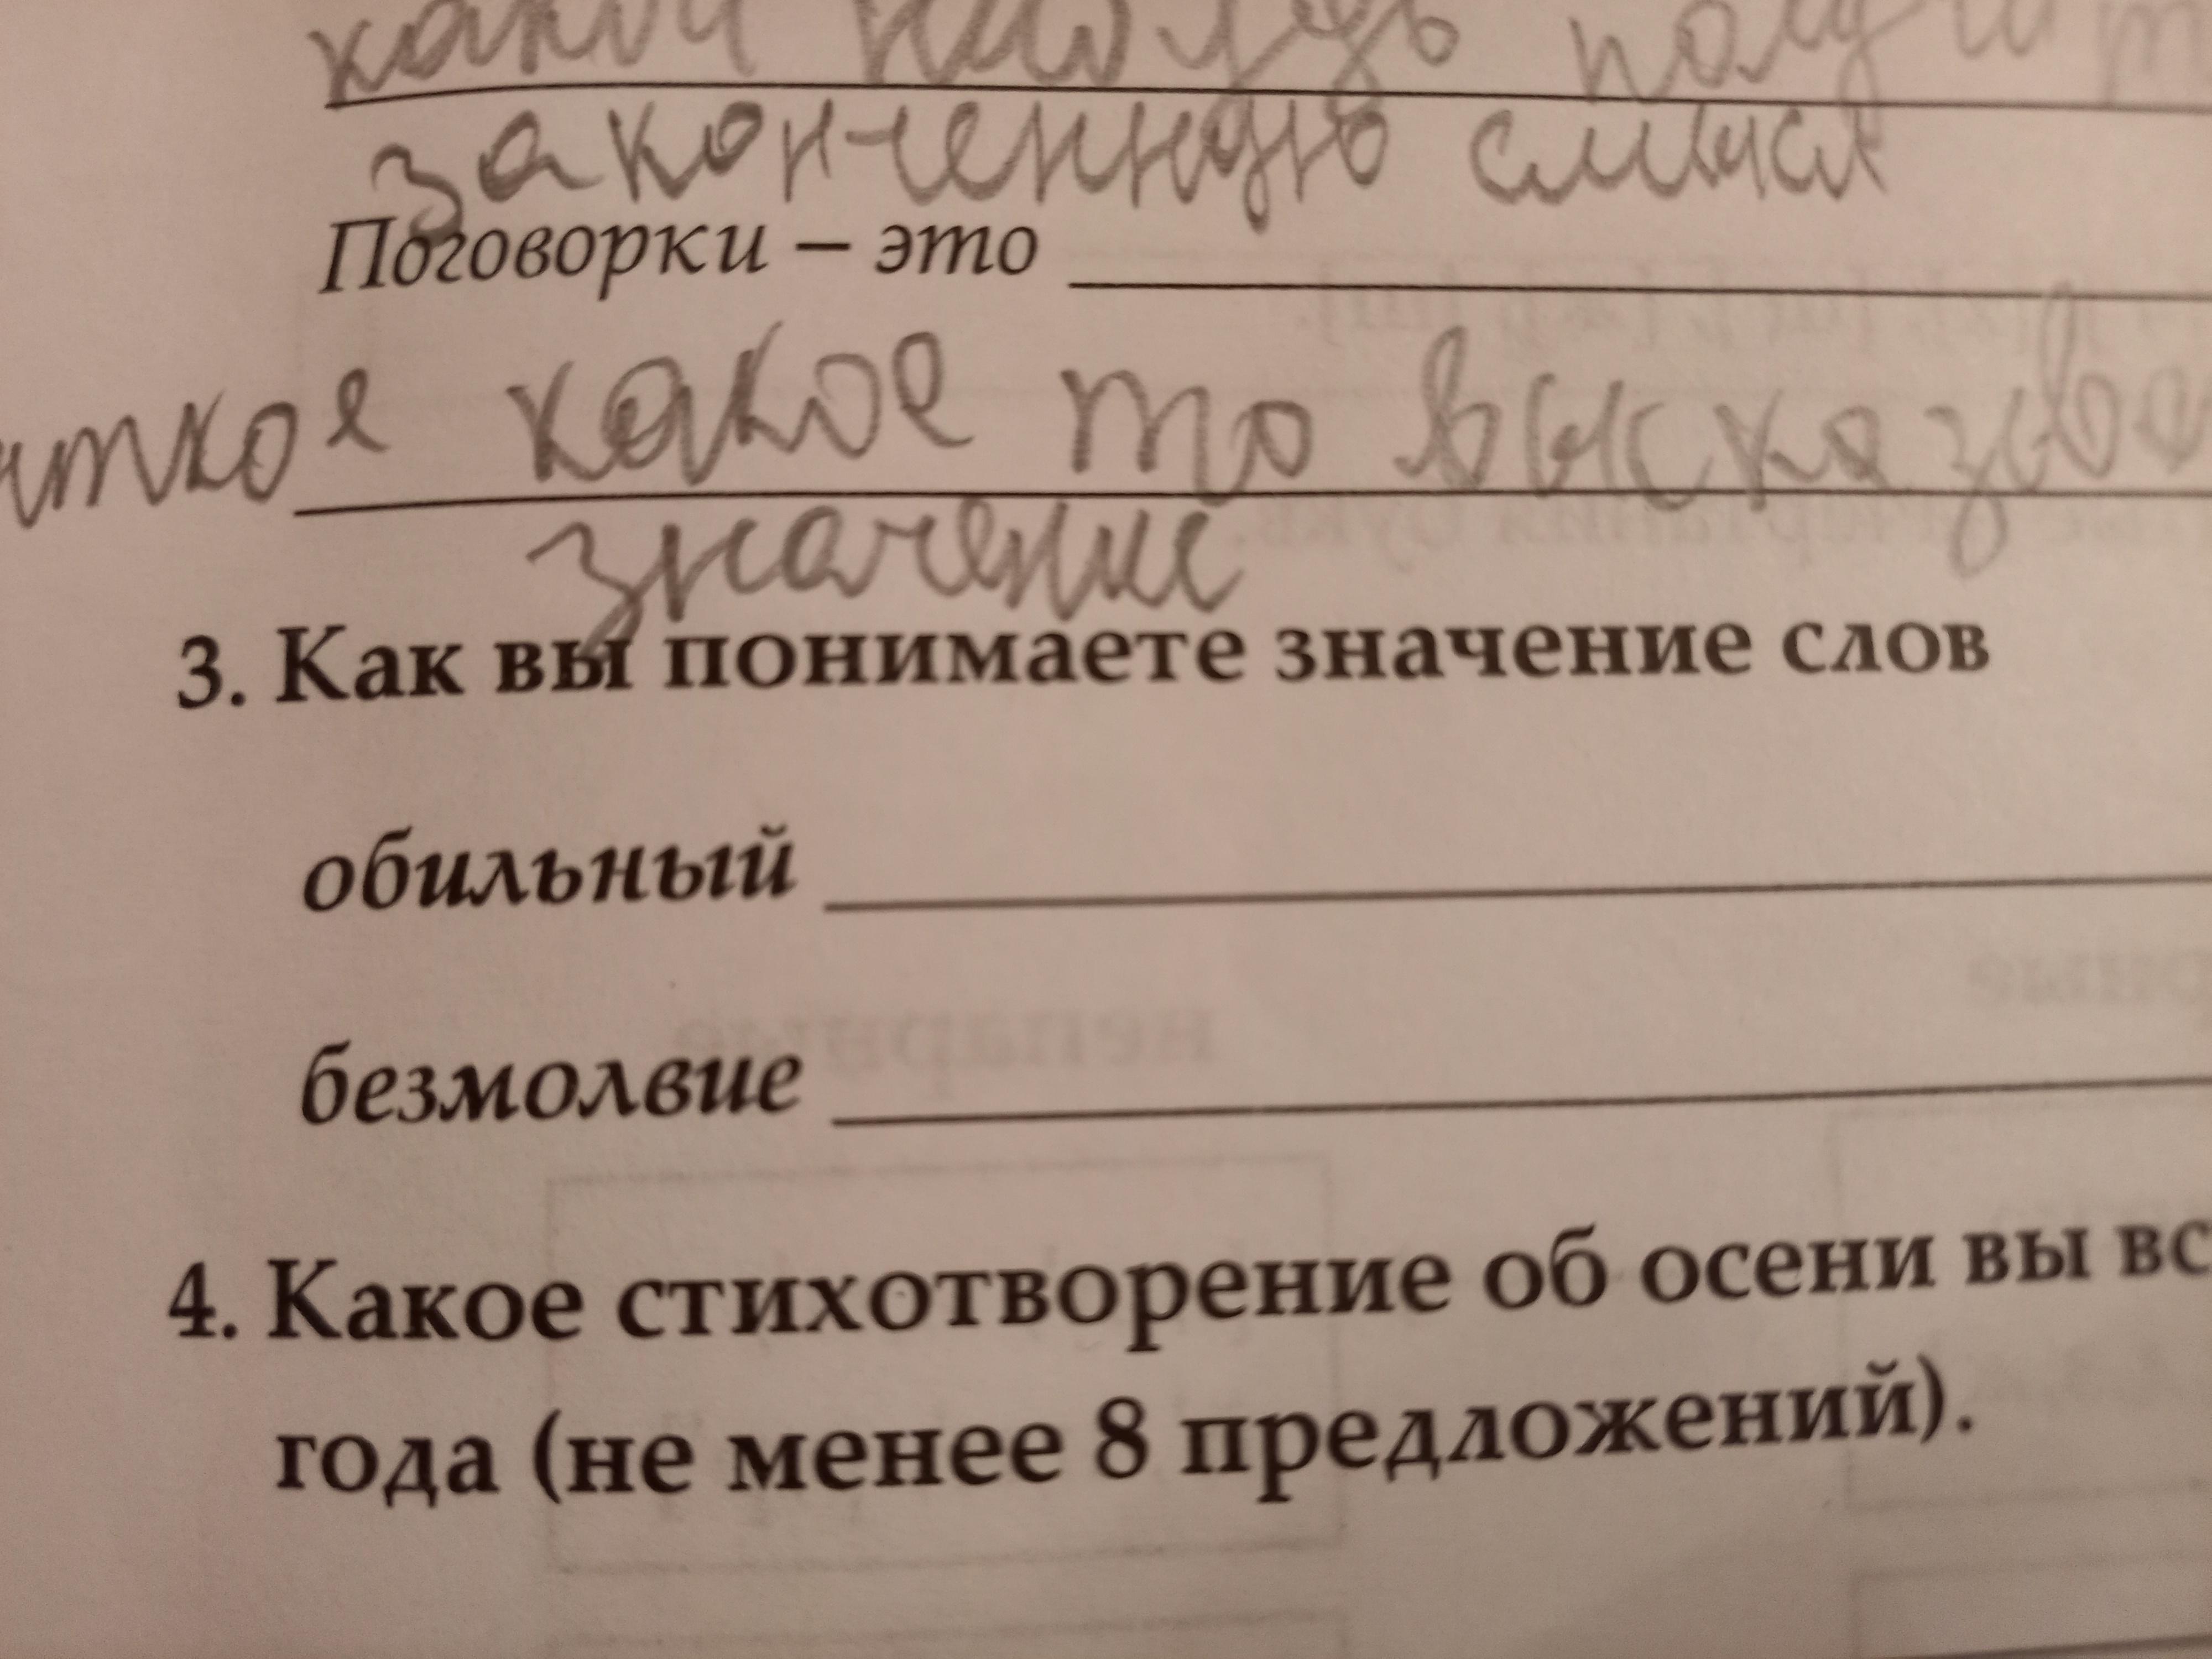 какой
законченную смысл
Поговорки – это
какое то
значение
3. Как вы понимаете значение слов
обильный
безмолвие
4. Какое стихотворение об осени вы вс
года (не менее 8 предложений).